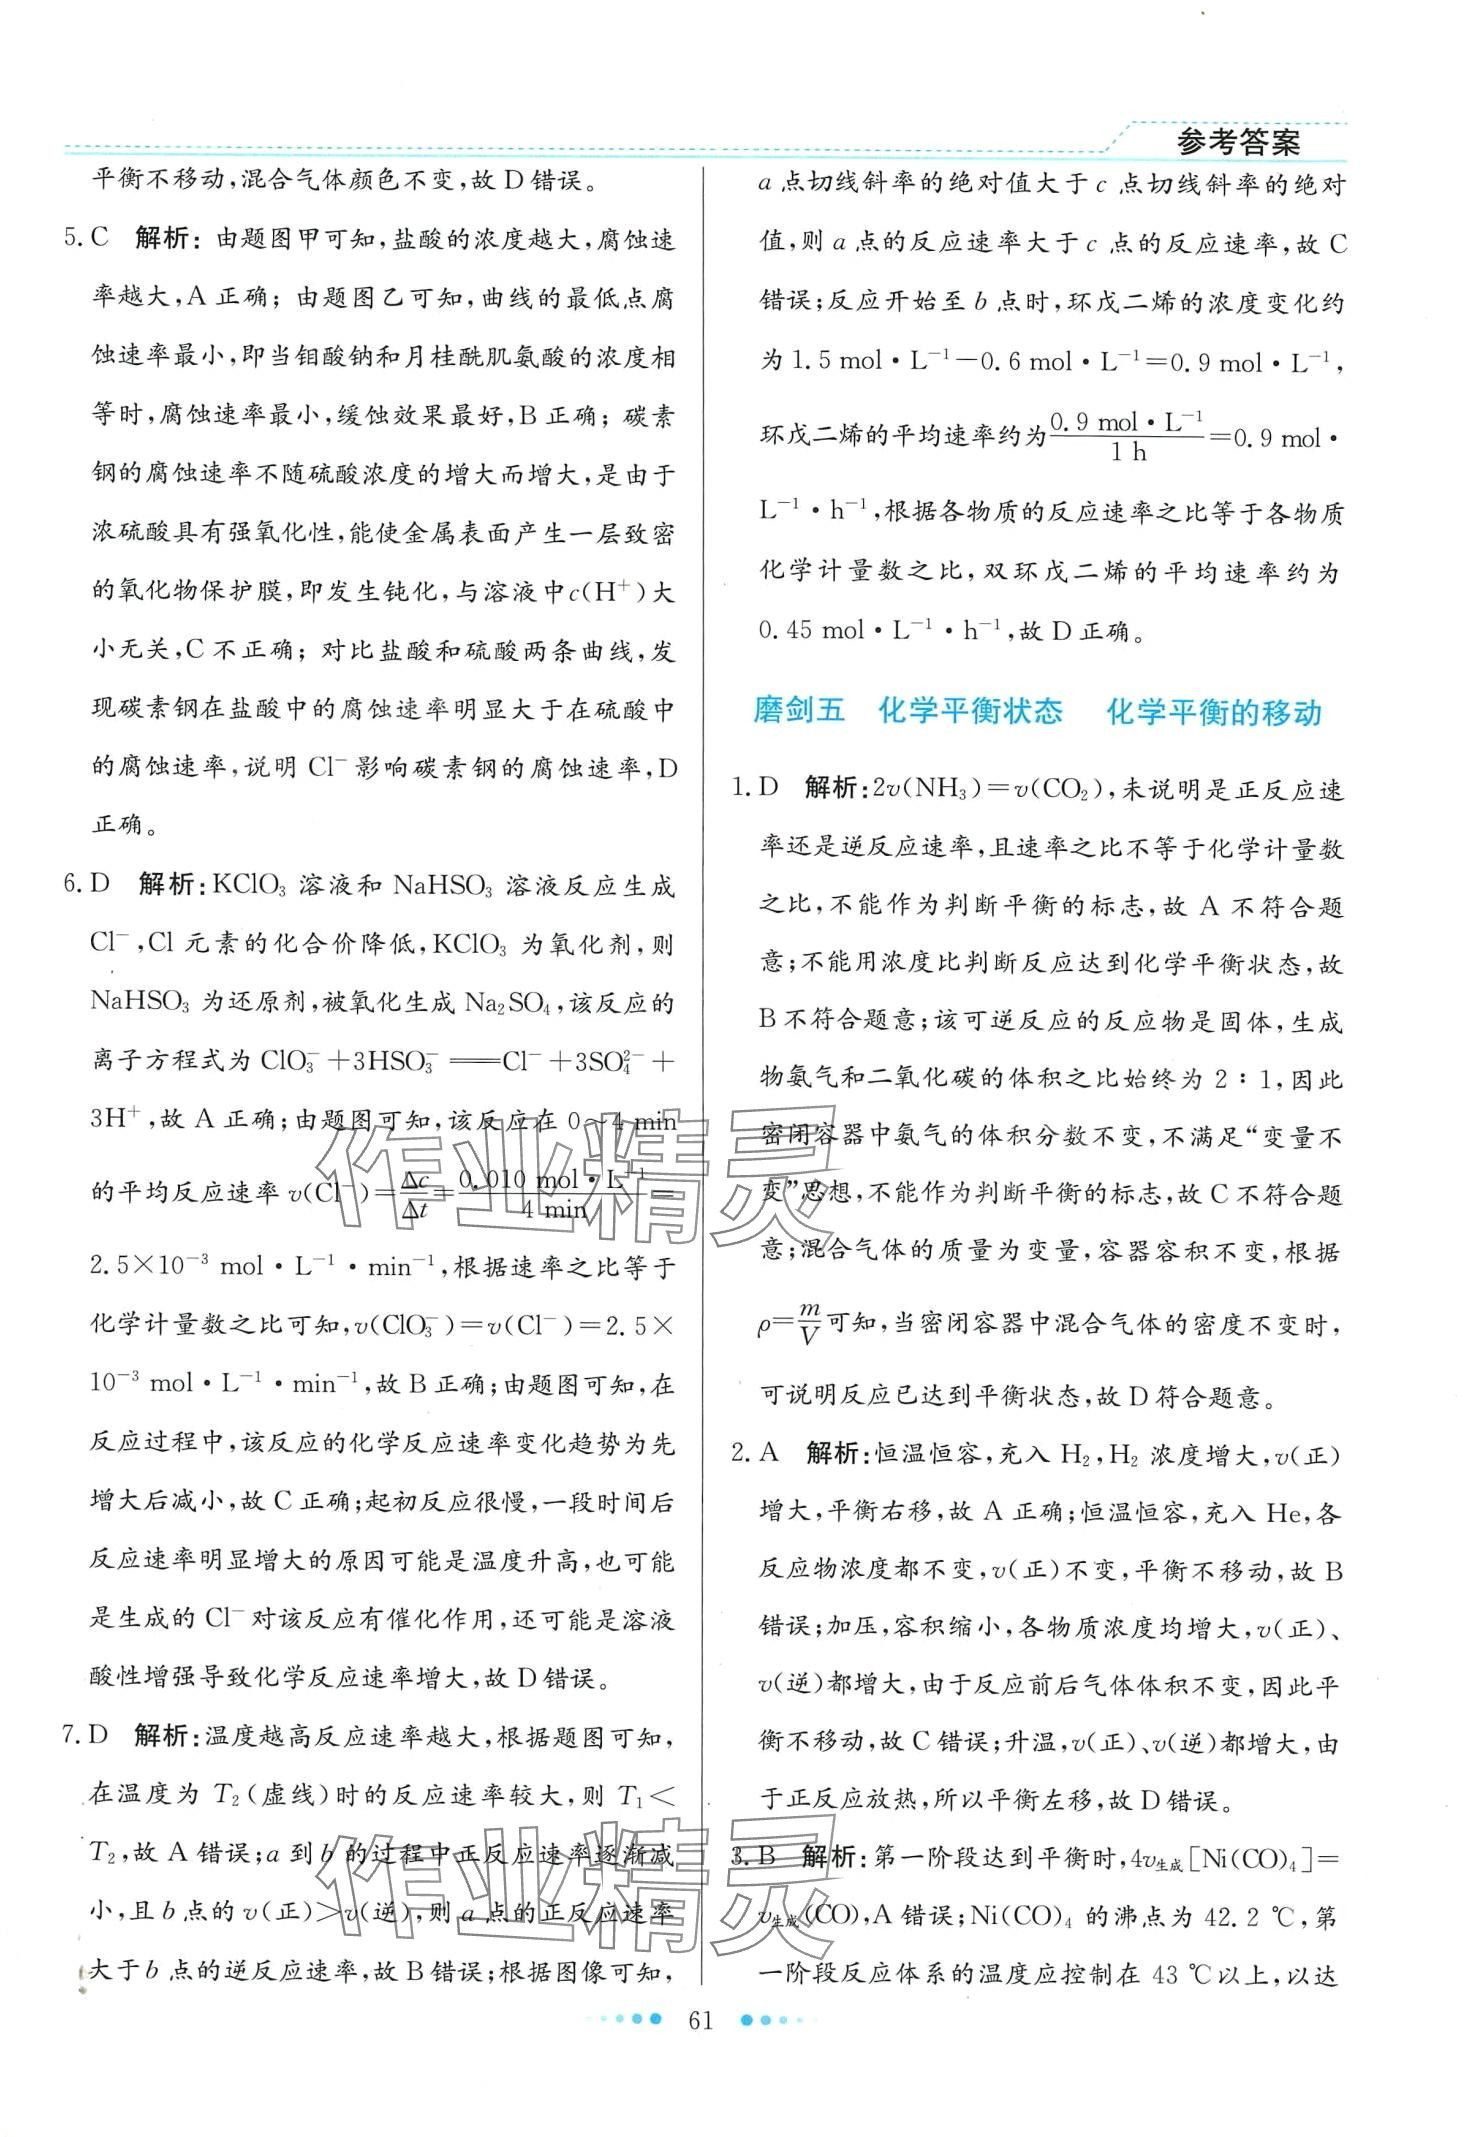 参考答案
平衡不移动,混合气体颜色不变,故 D 错误。
5. C 解析: 由题图甲可知,盐酸的浓度越大,腐蚀速
率越大,A 正确; 由题图乙可知,曲线的最低点腐
蚀速率最小,即当钼酸钠和月桂酰肌氨酸的浓度相
等时,腐蚀速率最小,缓蚀效果最好,B 正确; 碳素
钢的腐蚀速率不随硫酸浓度的增大而增大,是由于
浓硫酸具有强氧化性,能使金属表面产生一层致密
的氧化物保护膜,即发生钝化,与溶液中c(H⁺)大
小无关,C 不正确; 对比盐酸和硫酸两条曲线,发
现碳素钢在盐酸中的腐蚀速率明显大于在硫酸中
的腐蚀速率,说明 Cl⁻影响碳素钢的腐蚀速率,D
正确。
6. D 解析:KClO₃ 溶液和 NaHSO₃ 溶液反应生成
Cl⁻,Cl 元素的化合价降低,KClO₃ 为氧化剂,则
NaHSO₃ 为还原剂,被氧化生成 Na₂SO₄,该反应的
离子方程式为 ClO₃⁻+3HSO₃⁻══Cl⁻+3SO₄²⁻+
3H⁺,故 A 正确;由题图可知,该反应在 0~4 min
的平均反应速率 v(Cl⁻)=Δc/Δt=0.010 mol·L⁻¹/4 min=
2.5×10⁻³ mol·L⁻¹·min⁻¹,根据速率之比等于
化学计量数之比可知,v(ClO₃⁻)=v(Cl⁻)=2.5×
10⁻³ mol·L⁻¹·min⁻¹,故 B 正确;由题图可知,在
反应过程中,该反应的化学反应速率变化趋势为先
增大后减小,故 C 正确;起初反应很慢,一段时间后
反应速率明显增大的原因可能是温度升高,也可能
是生成的 Cl⁻对该反应有催化作用,还可能是溶液
酸性增强导致化学反应速率增大,故 D 错误。
7. D 解析:温度越高反应速率越大,根据题图可知,
在温度为 T₂(虚线)时的反应速率较大,则 T₁<
T₂,故 A 错误;a 到 b 的过程中正反应速率逐渐减
小,且 b 点的 v(正)>v(逆),则 a 点的正反应速率
大于 b 点的逆反应速率,故 B 错误;根据图像可知,
a 点切线斜率的绝对值大于 c 点切线斜率的绝对
值,则 a 点的反应速率大于 c 点的反应速率,故 C
错误;反应开始至 b 点时,环戊二烯的浓度变化约
为 1.5 mol·L⁻¹−0.6 mol·L⁻¹=0.9 mol·L⁻¹,
环戊二烯的平均速率约为0.9 mol·L⁻¹/1 h=0.9 mol·
L⁻¹·h⁻¹,根据各物质的反应速率之比等于各物质
化学计量数之比,双环戊二烯的平均速率约为
0.45 mol·L⁻¹·h⁻¹,故 D 正确。
磨剑五 化学平衡状态 化学平衡的移动
1. D 解析:2v(NH₃)=v(CO₂),未说明是正反应速
率还是逆反应速率,且速率之比不等于化学计量数
之比,不能作为判断平衡的标志,故 A 不符合题
意;不能用浓度比判断反应达到化学平衡状态,故
B 不符合题意;该可逆反应的反应物是固体,生成
物氨气和二氧化碳的体积之比始终为 2∶1,因此
密闭容器中氨气的体积分数不变,不满足“变量不
变”思想,不能作为判断平衡的标志,故 C 不符合题
意;混合气体的质量为变量,容器容积不变,根据
ρ=m/V可知,当密闭容器中混合气体的密度不变时,
可说明反应已达到平衡状态,故 D 符合题意。
2. A 解析:恒温恒容,充入 H₂,H₂ 浓度增大,v(正)
增大,平衡右移,故 A 正确;恒温恒容,充入 He,各
反应物浓度都不变,v(正)不变,平衡不移动,故 B
错误;加压,容积缩小,各物质浓度均增大,v(正)、
v(逆)都增大,由于反应前后气体体积不变,因此平
衡不移动,故 C 错误;升温,v(正)、v(逆)都增大,由
于正反应放热,所以平衡左移,故 D 错误。
3. B 解析:第一阶段达到平衡时,4v生成[Ni(CO)₄]=
v生成(CO),A 错误;Ni(CO)₄ 的沸点为 42.2 ℃,第
一阶段反应体系的温度应控制在 43 ℃以上,以达
61
作业精灵
作业精灵